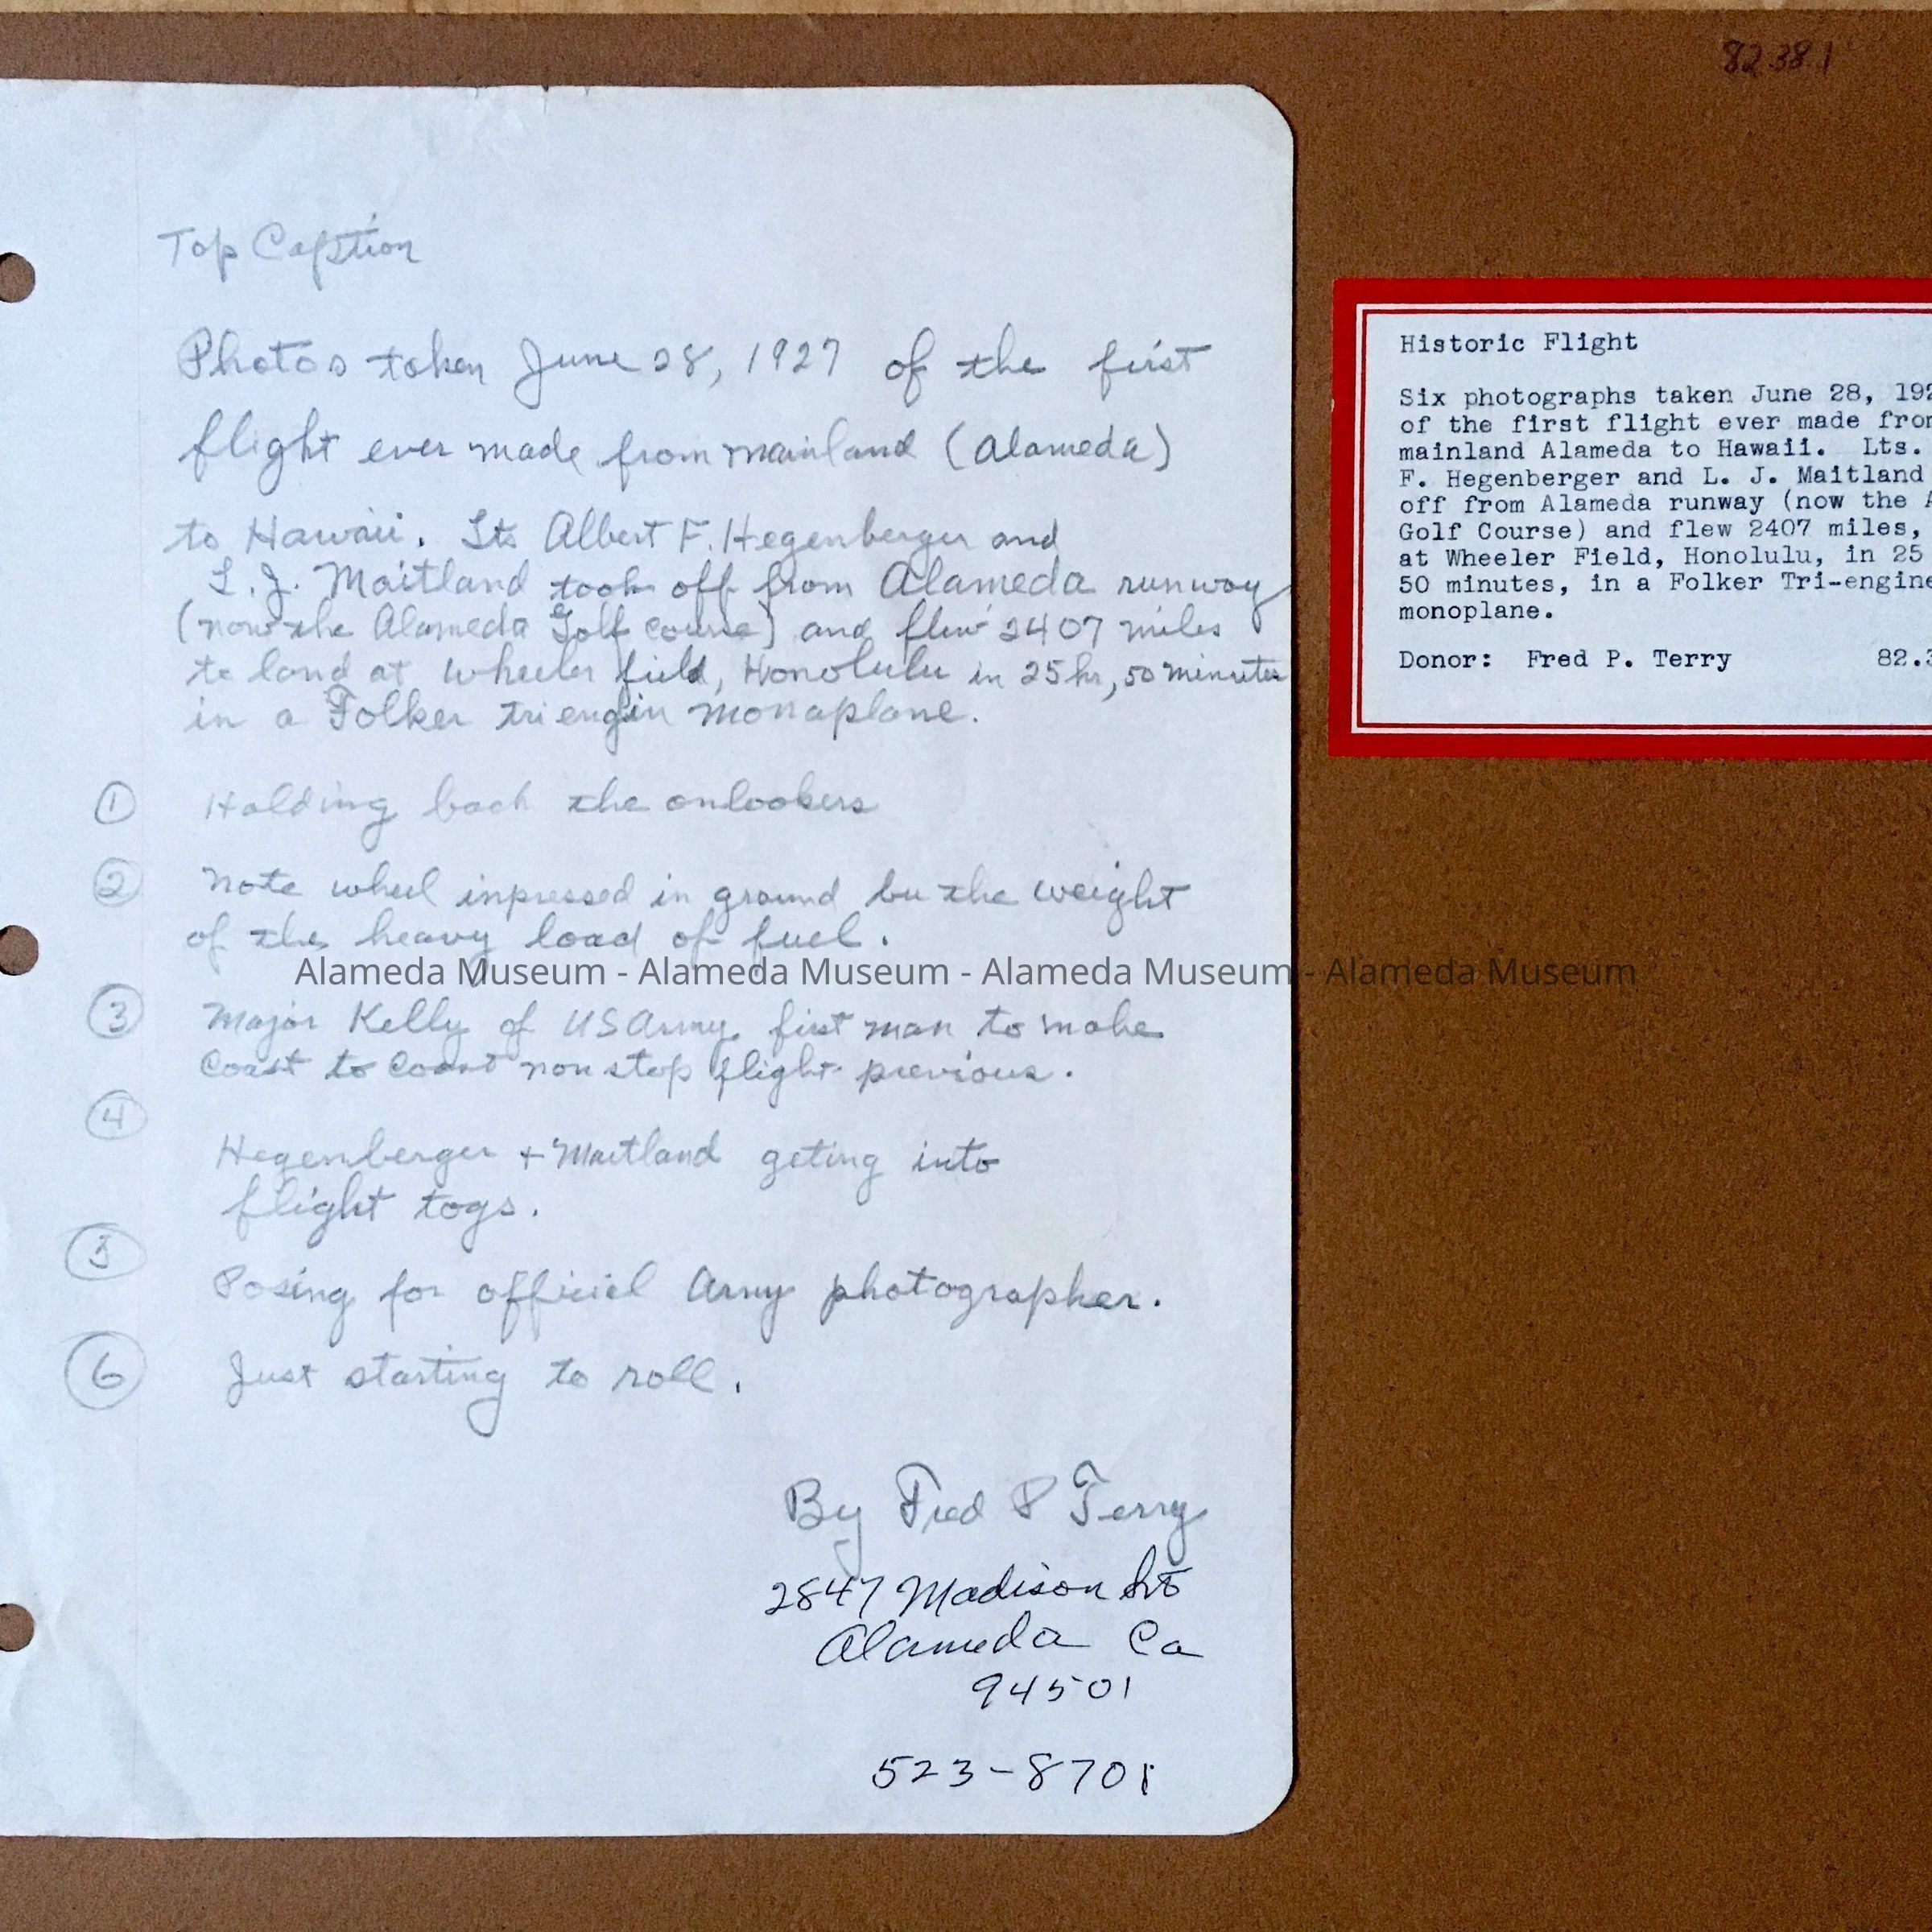 82.38.1
Top Caption
Photos taken June 28, 1927 of the first
flight ever made from mainland (Alameda)
to Hawaii. Lts Albert F. Hegenberger and
L. J. Maitland took off from Alameda runway
(now the Alameda Golf Course) and flew 2407 miles
to land at Wheeler field, Honolulu in 25 hr, 50 minutes
in a Folker tri engin monaplane.
① Holding back the onlookers
② Note wheel inpressed in ground bu the weight
of the heavy load of fuel.
③ Major Kelly of US Army first man to make
Coast to Coast non stop flight previous.
④ Hegenberger + Maitland geting into
flight togs.
⑤ Posing for official Army photographer.
⑥ Just starting to roll.
By Fred P Terry
2847 Madison St
Alameda Ca
94501
523-8701
Historic Flight
Six photographs taken June 28, 192
of the first flight ever made from
mainland Alameda to Hawaii. Lts.
F. Hegenberger and L. J. Maitland
off from Alameda runway (now the A
Golf Course) and flew 2407 miles,
at Wheeler Field, Honolulu, in 25
50 minutes, in a Folker Tri-engine
monoplane.
Donor: Fred P. Terry 82.3
Alameda Museum - Alameda Museum - Alameda Museum - Alameda Museum